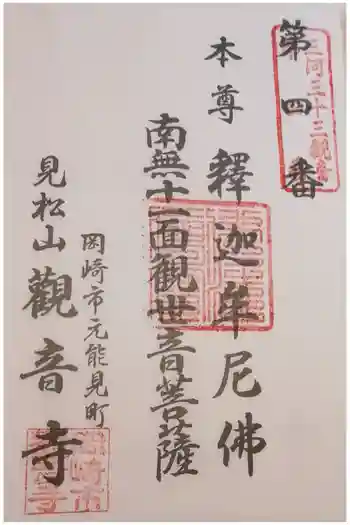 第四番
三河三十三觀音
本尊 釋迦牟尼佛
南無十一面觀世音菩薩
岡崎市元能見町
見松山觀音寺